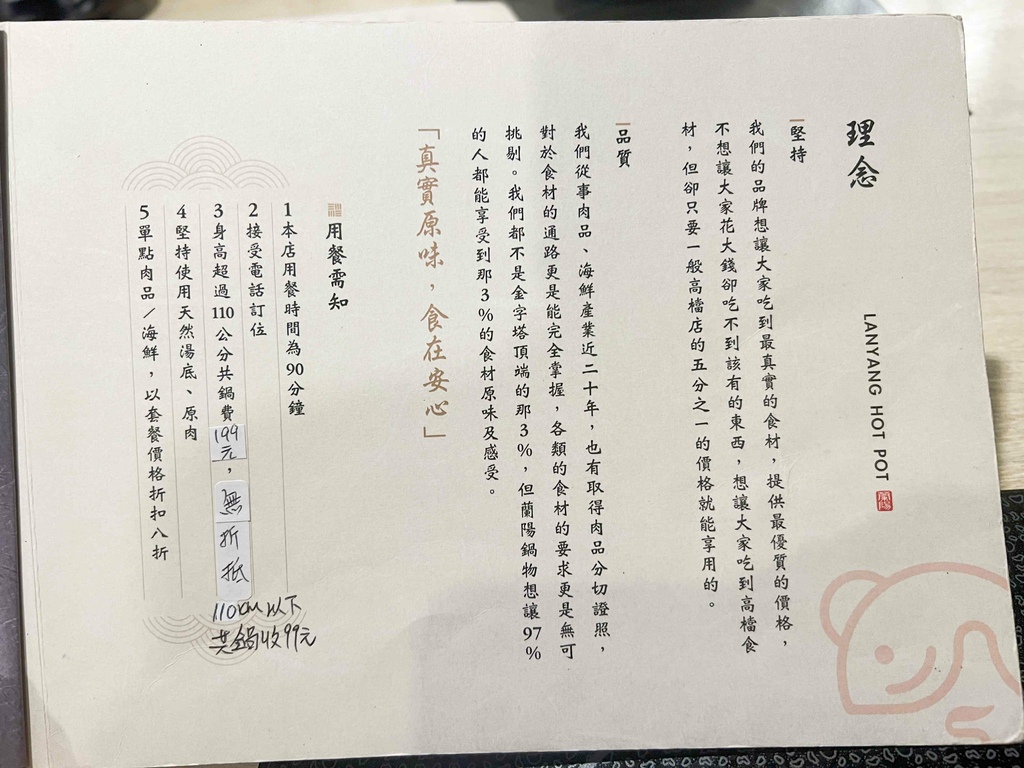 理念
LANYANG HOT POT
蘭陽
堅持
我們的品牌想讓大家吃到最真實的食材，提供最優質的價格，
不想讓大家花大錢卻吃不到該有的東西，想讓大家吃到高檔食
材，但卻只要一般高檔店的五分之一的價格就能享用的。
品質
我們從事肉品、海鮮產業近二十年，也有取得肉品分切證照，
對於食材的通路更是能完全掌握，各類的食材的要求更是無可
挑剔。我們都不是金字塔頂端的那3%，但蘭陽鍋物想讓97%
的人都能享受到那3%的食材原味及感受。
「真實原味，食在安心」
用餐需知
1本店用餐時間為90分鐘
2接受電話訂位
3身高超過110公分共鍋費199元，無折抵
110cm以下
共鍋收99元
4堅持使用天然湯底、原肉
5單點肉品／海鮮，以套餐價格折扣八折